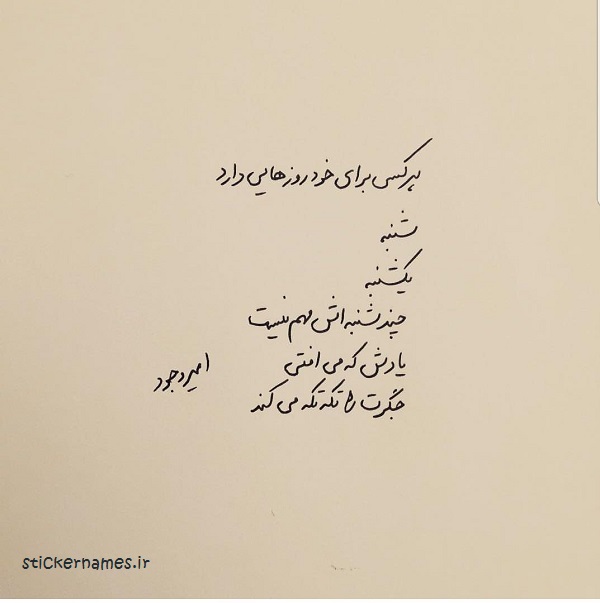 هر کسی برای خود روزهایی دارد
شنبه
یکشنبه
چند شنبه اش مهم نیست
یادش که می افتی
جگرت را تکه تکه می کند
امیر وجود
stickernames.ir